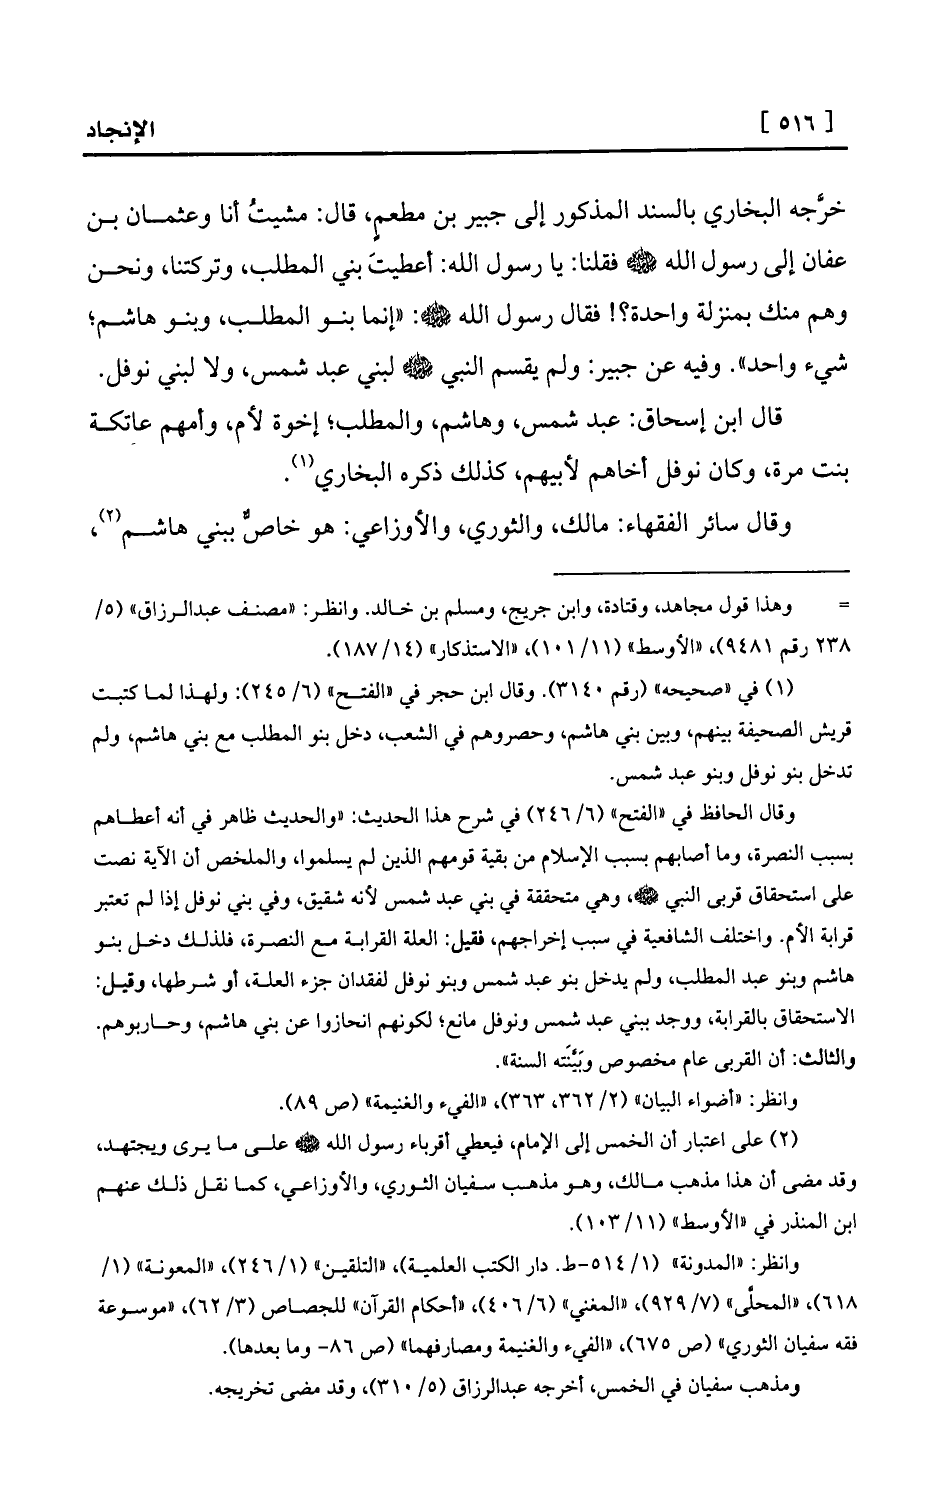 [ ٥١٦ ] الإنجاد
خرَّجه البخاري بالسند المذكور إلى جبير بن مطعمٍ، قال: مشيتُ أنا وعثمان بن
عفان إلى رسول الله ﷺ فقلنا: يا رسول الله: أعطيتَ بني المطلب، وتركتنا، ونحن
وهم منك بمنزلة واحدة؟! فقال رسول الله ﷺ: «إنما بنو المطلب، وبنو هاشم؛
شيء واحد». وفيه عن جبير: ولم يقسم النبي ﷺ لبني عبد شمس، ولا لبني نوفل.
قال ابن إسحاق: عبد شمس، وهاشم، والمطلب؛ إخوة لأم، وأمهم عاتكة
بنت مرة، وكان نوفل أخاهم لأبيهم، كذلك ذكره البخاري(١).
وقال سائر الفقهاء: مالك، والثوري، والأوزاعي: هو خاصٌّ ببني هاشم(٢)،
= وهذا قول مجاهد، وقتادة، وابن جريج، ومسلم بن خالد. وانظر: «مصنف عبدالرزاق» (٥/
٢٣٨ رقم ٩٤٨١)، «الأوسط» (١١/ ١٠١)، «الاستذكار» (١٤/ ١٨٧).
(١) في «صحيحه» (رقم ٣١٤٠). وقال ابن حجر في «الفتح» (٦/ ٢٤٥): ولهذا لما كتبت
قريش الصحيفة بينهم، وبين بني هاشم، وحصروهم في الشعب، دخل بنو المطلب مع بني هاشم، ولم
تدخل بنو نوفل وبنو عبد شمس.
وقال الحافظ في «الفتح» (٦/ ٢٤٦) في شرح هذا الحديث: «والحديث ظاهر في أنه أعطاهم
بسبب النصرة، وما أصابهم بسبب الإسلام من بقية قومهم الذين لم يسلموا، والملخص أن الآية نصت
على استحقاق قربى النبي ﷺ، وهي متحققة في بني عبد شمس لأنه شقيق، وفي بني نوفل إذا لم تعتبر
قرابة الأم. واختلف الشافعية في سبب إخراجهم، فقيل: العلة القرابة مع النصرة، فلذلك دخل بنو
هاشم وبنو عبد المطلب، ولم يدخل بنو عبد شمس وبنو نوفل لفقدان جزء العلة، أو شرطها، وقيل:
الاستحقاق بالقرابة، ووجد ببني عبد شمس ونوفل مانع؛ لكونهم انحازوا عن بني هاشم، وحاربوهم.
والثالث: أن القربى عام مخصوص وبَيَّنَته السنة».
وانظر: «أضواء البيان» (٢/ ٣٦٢، ٣٦٣)، «الفيء والغنيمة» (ص ٨٩).
(٢) على اعتبار أن الخمس إلى الإمام، فيعطي أقرباء رسول الله ﷺ على ما يرى ويجتهد،
وقد مضى أن هذا مذهب مالك، وهو مذهب سفيان الثوري، والأوزاعي، كما نقل ذلك عنهم
ابن المنذر في «الأوسط» (١١/ ١٠٣).
وانظر: «المدونة» (١/ ٥١٤-ط. دار الكتب العلمية)، «التلقين» (١/ ٢٤٦)، «المعونة» (١/
٦١٨)، «المحلَّى» (٧/ ٩٢٩)، «المغني» (٦/ ٤٠٦)، «أحكام القرآن» للجصاص (٣/ ٦٢)، «موسوعة
فقه سفيان الثوري» (ص ٦٧٥)، «الفيء والغنيمة ومصارفهما» (ص ٨٦- وما بعدها).
ومذهب سفيان في الخمس، أخرجه عبدالرزاق (٥/ ٣١٠)، وقد مضى تخريجه.